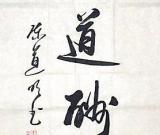 道酬
陈道明书